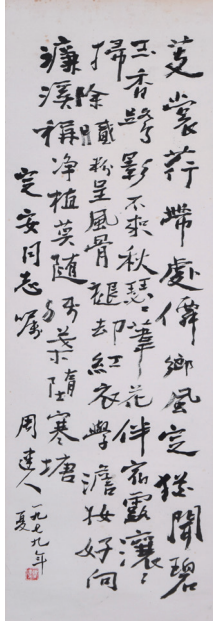 芰裳荇帶處僊鄉風定猶聞碧
玉香鷺影不來秋瑟〻葦花伴宿露瀼〻
掃除膩粉呈風骨褪却紅衣學澹妝好向
濂溪稱净植莫随残葉墮寒塘
定安同志嘱
周建人
一九七九年
夏